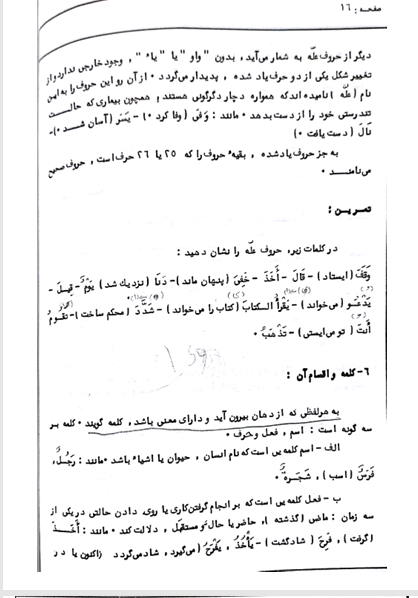 صفحه: ۱۶
دیگر از حروف علّه به شمار می‌آید، بدون "واو" یا "یاء"، وجود خارجی ندارد و از
تغییر شکل یکی از دو حرف یاد شده، پدیدار می‌گردد۰ از آن رو این حروف را به این
نام (علّه) نامیده‌اند که همواره دچار دگرگونی هستند، همچون بیماری که حالت
تندرستی خود را از دست بدهد۰ مانند: وَفَی (وفا کرد۰)- یَسَرَ (آسان شد۰)-
نَالَ (دست یافت۰)
به جز حروف یاد شده، بقیه حروف را که ۲۵ یا ۲۶ حرف است، حروف صحیح
می‌نامند۰
تمرین:
در کلمات زیر، حروف علّه را نشان دهید:
وَقَفَ (ایستاد)- قَالَ- أَخَذَ- خَفِیَ (پنهان ماند)- دَنَا (نزدیک شد) یَوْمٌ- قِیلَ-
یَدْعُو (می‌خواند)- یَقْرَأُ الکتابَ (کتاب را می‌خواند)- شَدَّدَ (محکم ساخت)- تَقُومُ
أَنْتَ (تو می‌ایستی)- تَذْهَبُ۰
۶- کلمه و اقسام آن:
به هر لفظی که از دهان بیرون آید و دارای معنی باشد، کلمه گویند۰ کلمه بر
سه گونه است: اسم، فعل و حرف۰
الف- اسم کلمه‌یی است که نام انسان، حیوان یا اشیاء باشد۰ مانند: رَجُلٌ،
فَرَسٌ (اسب)، شَجَرَةٌ۰
ب- فعل کلمه‌یی است که بر انجام گرفتن کاری یا روی دادن حالتی در یکی از
سه زمان: ماضی (گذشته)، حاضر یا حال و مستقبل، دلالت کند۰ مانند: أَخَذَ
(گرفت)، فَرِحَ (شاد گشت)- یَأْخُذُ، یَفْرَحُ (می‌گیرد، شاد می‌گردد (اکنون یا در